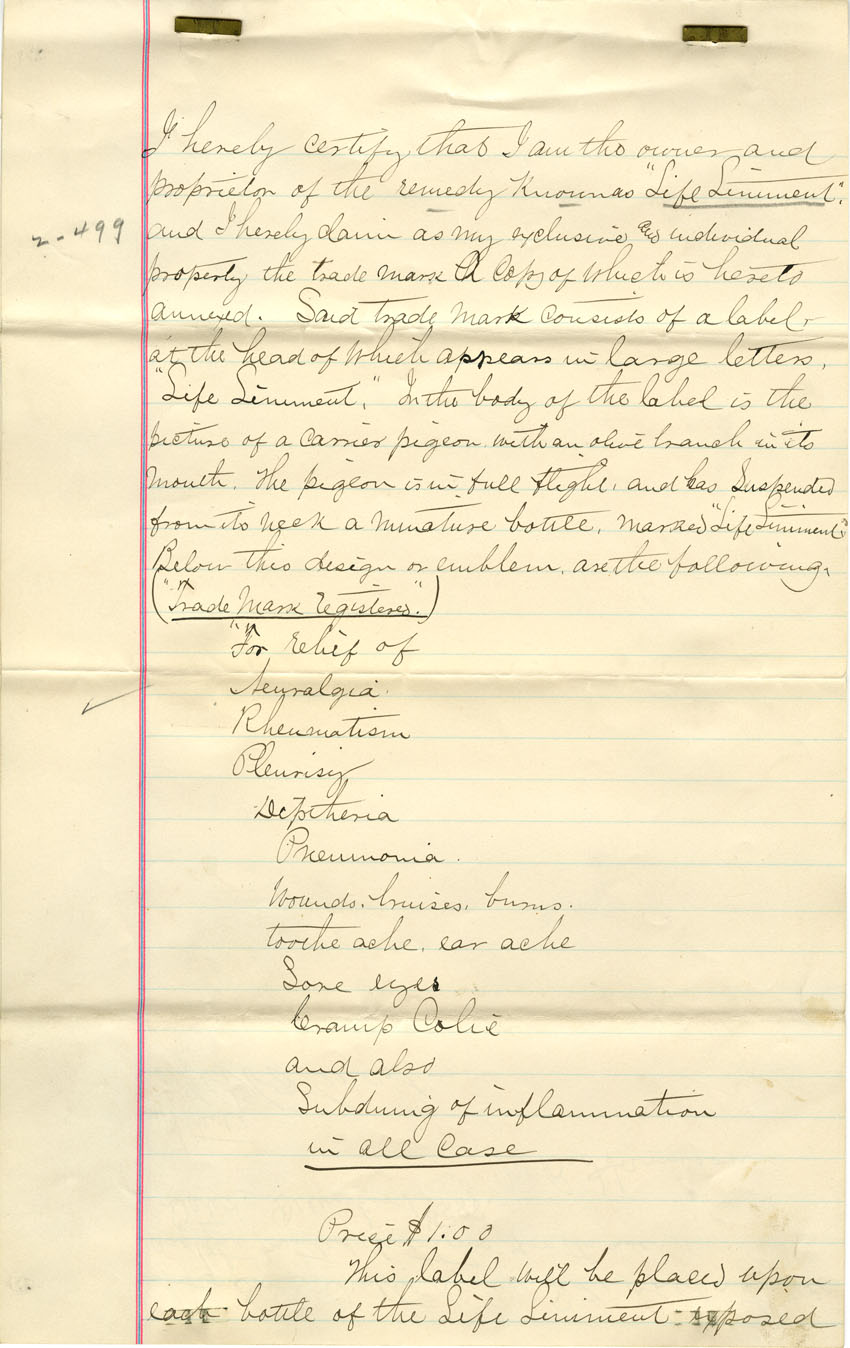 I hereby certify that I am the owner and
proprietor of the remedy Known as "Life Liniment".
2-499
and I hereby claim as my exclusive and individual
property the trade mark a copy of which is hereto
annexed. Said trade mark consists of a label
at the head of which appears in large letters,
"Life Liniment." In the body of the label is the
picture of a carrier pigeon with an olive branch in its
mouth. The pigeon is in full flight, and has suspended
from its neck a minature bottle, marked "Life Liniment"
Below this design or emblem, are the following.
("Trade Mark registered.")
"For relief of
Neuralgia.
Rheumatism
Pleurisy
Diptheria
Pneumonia.
Wounds, bruises, burns.
toothe ache, ear ache
Sore eyes
Cramp Colic
and also
Subduing of inflammation
in all Case
Price $1.00
This label will be placed upon
each bottle of the Life Liniment exposed